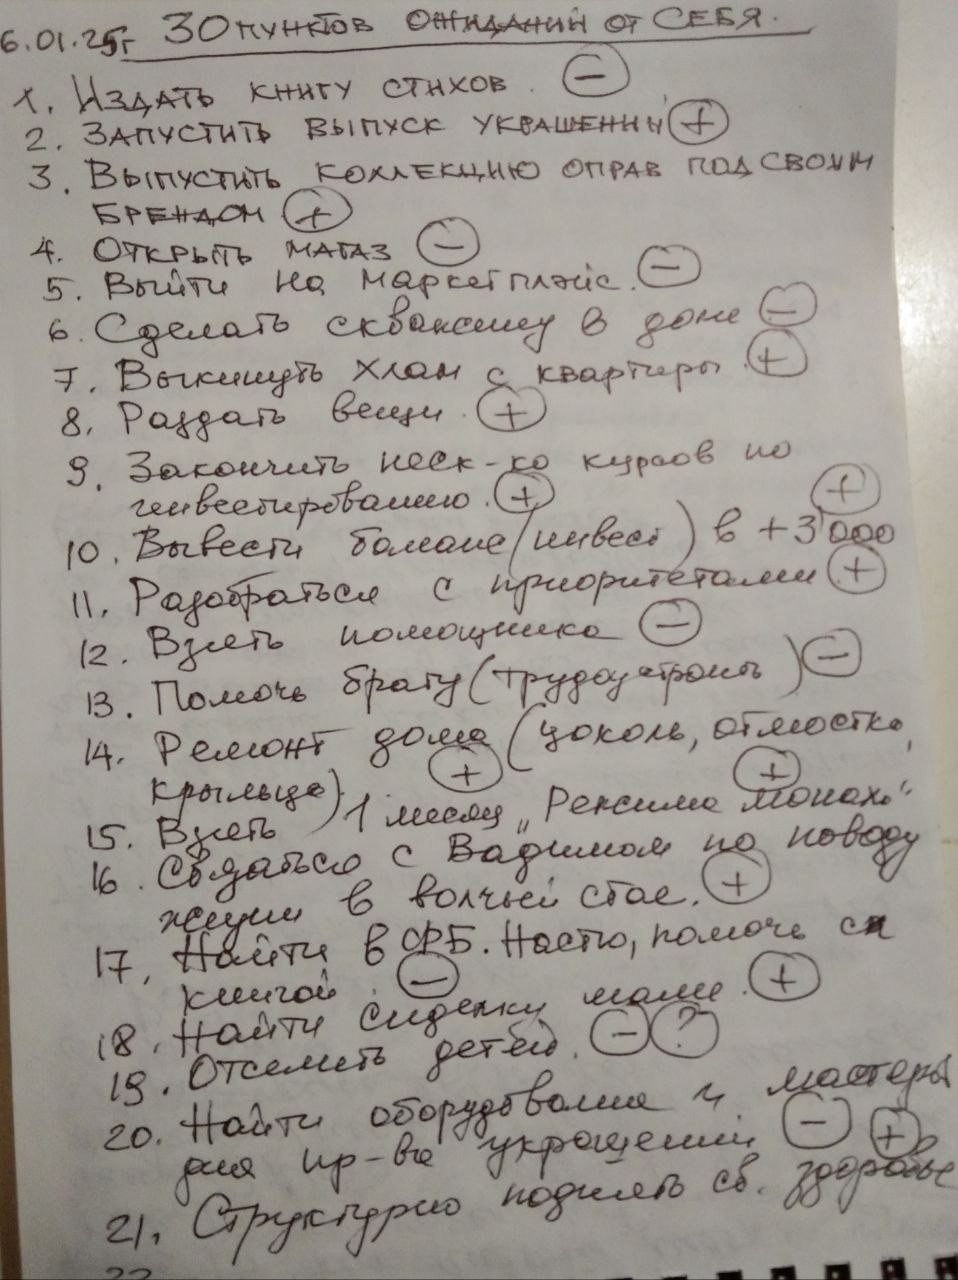 6.01.25г 30 пунктов ожиданий от себя.
1. Издать книгу стихов. (−)
2. Запустить выпуск украшений (+)
3. Выпустить коллекцию оправ под своим
брендом (+)
4. Открыть магаз (−)
5. Выйти на маркетплэйс. (−)
6. Сделать скважину в доме (−)
7. Выкинуть хлам с квартиры. (+)
8. Раздать вещи. (+)
9. Закончить неск-ко курсов по
инвестированию. (+) (+)
10. Вывести баланс (инвест) в +3'000
11. Разобраться с приоритетами (+)
12. Взять помощника (−)
13. Помочь брату (трудоустроить) (−)
14. Ремонт дома (цоколь, отмостка,
крыльцо) (+) (+)
15. Взять 1 месяц „Режима монах"
16. Связаться с Вадимом по поводу
жизни в волчьей стае. (+)
17. Найти в ФБ. Настю, помочь с
книгой. (−)
18. Найти сиделку маме. (+)
19. Отселить детей. (−) (?)
20. Найти оборудования и мастеры
для пр-ва украшений (−) (+)
21. Структурно поднять св. здоровье